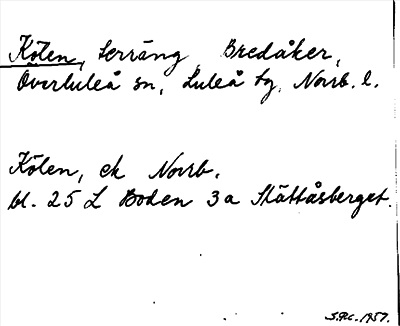 Kölen, terräng, Bredåker,
Överluleå sn, Luleå tg, Norrb. l.
Kölen, ek Norrb.
bl. 25 L Boden 3a Slättåsberget.
1957.